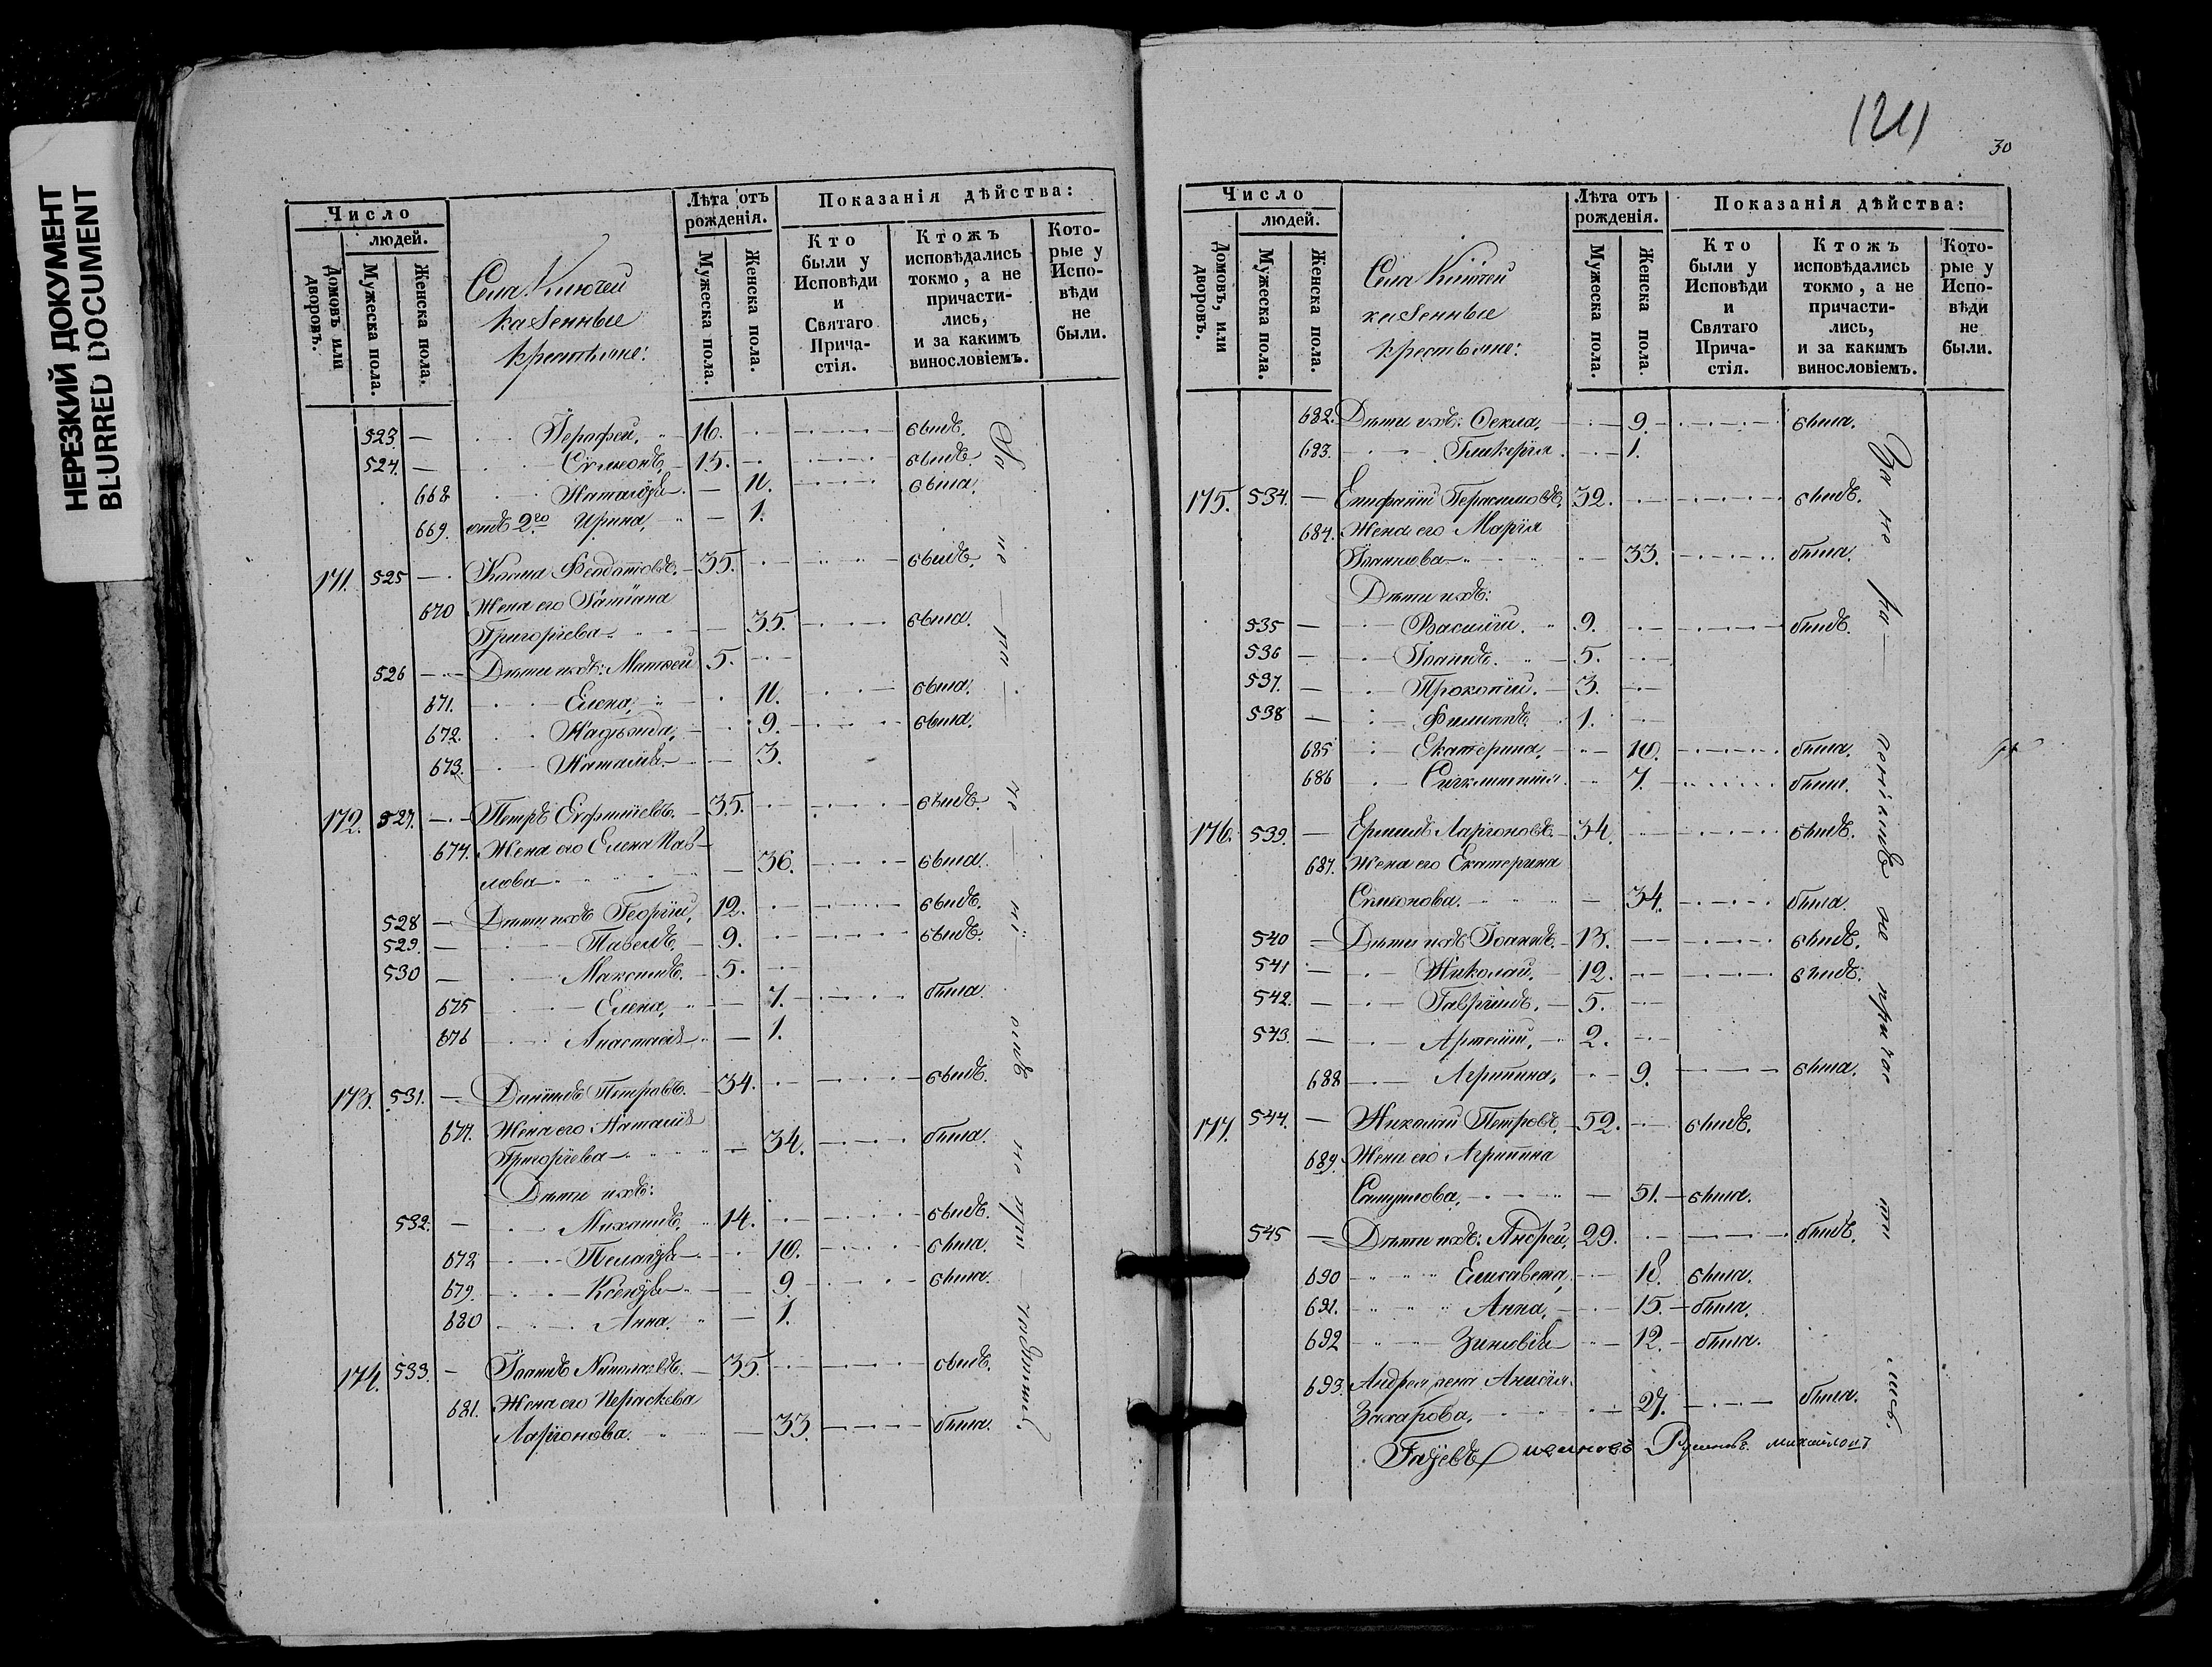 НЕРЕЗКИЙ ДОКУМЕНТ
BLURRED DOCUMENT
Число
людей.
Домовъ или дворовъ.
Мужеска пола.
Женска пола.
Села Ключей
казенные
крестьяне:
Лѣта отъ рожденія.
Мужеска пола.
Женска пола.
Показанія дѣйства:
Кто были у Исповѣди и Святаго Прича-стія.
Ктожъ исповѣдались токмо, а не причасти-лись, и за какимъ винословіемъ.
Кото-рые у Испо-вѣди не были.
523. — Іерофей, 16. былъ.
524. — Сѵмеонъ, 13. былъ.
668 Наталія 11. была.
669. отъ 2го Ирина, — 1.
171. 525 — Косма Ѳеодотовъ. 35. былъ.
670 Жена его Татіана
Григоріева — 35. была.
526 — Дѣти ихъ: Матѳей 5.
671. Елена, 11. была.
672. Надежда, 9. была.
673. Наталія — 3.
172. 527. — Петръ Евфиміевъ. 35. былъ.
674. Жена его Елена Пав-
лова — 36. была.
528 — Дѣти ихъ Георгій, 12. былъ.
529. — Павелъ, 9. былъ.
530 — Максимъ. 5.
675 Елена, — 7. была.
676 Анастасія — 1.
173. 531. — Даніилъ Петровъ. 34. былъ.
677. Жена его Наталія
Григоріева — 34. была.
Дѣти ихъ:
532. — Михаилъ, 14. былъ.
678 Пелагія — 10. была.
679. Ксенія — 9. была.
680 Анна, — 1.
174. 533. — Іоаннъ Николаевъ. 35. былъ.
681. Жена его Параскева
Ларіонова. — 33. была.
За не
121
30
Число
людей.
Домовъ, или дворовъ.
Мужеска пола.
Женска пола.
Села Ключей
казенные
крестьяне:
Лѣта отъ рожденія.
Мужеска пола.
Женска пола.
Показанія дѣйства:
Кто были у Исповѣди и Святаго Прича-стія.
Ктожъ исповѣдались токмо, а не причасти-лись, и за какимъ винословіемъ.
Кото-рые у Испо-вѣди не были.
682. Дѣти ихъ: Ѳекла, 9. была.
683. Гликерія 1.
175. 534. — Епифаній Герасимовъ, 32. былъ.
684. Жена его Марія
Іоаннова — 33. была.
Дѣти ихъ:
535 — Василій. 9. былъ.
536 — Іоаннъ. 5.
537. — Прокопій. 3.
538 — Филиппъ 1.
685 Екатерина, 10. была.
686 Сѵнклитикія 7. была.
176. 539. — Ермилъ Ларіоновъ 34. былъ.
687. Жена его Екатерина
Симонова. — 34. была.
540 — Дѣти ихъ Іоаннъ 13. былъ.
541 — Николай. 12. былъ.
542. — Гавріилъ, 5.
543. — Артемій, 2.
688 Агрипина, 9. была.
177. 544. — Николай Петровъ, 52. былъ.
689. Жена его Агрипина
Самуилова, — 51. была.
545 — Дѣти ихъ: Андрей, 29. былъ.
690 Елисавета 18. была.
691. Анна, 15. была.
692 Зиновія 12. была.
693. Андрея жена Анисія
Захарова, 27. была.
За не